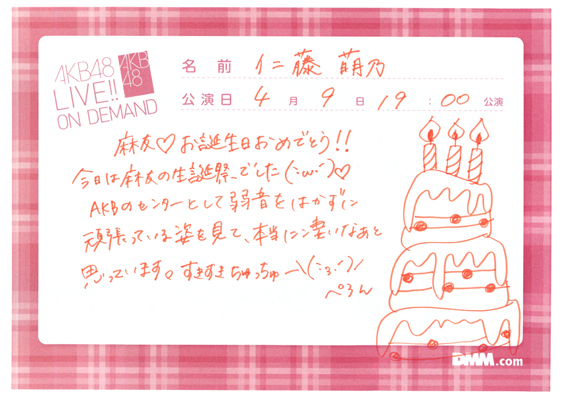 AKB48
LIVE!!
ON DEMAND
AKB
48
名前 仁藤 萌乃
公演日 4月9日 19:00 公演
麻友♡お誕生日おめでとう!!
今日は麻友の生誕祭でした(´･ω･`)♡
AKBのセンターとして弱音をはかずに
頑張っている姿を見て、本当に凄いなあと
思っています。すきすきちゅっちゅー\(´･з･`)/
ぺろん
DMM.com